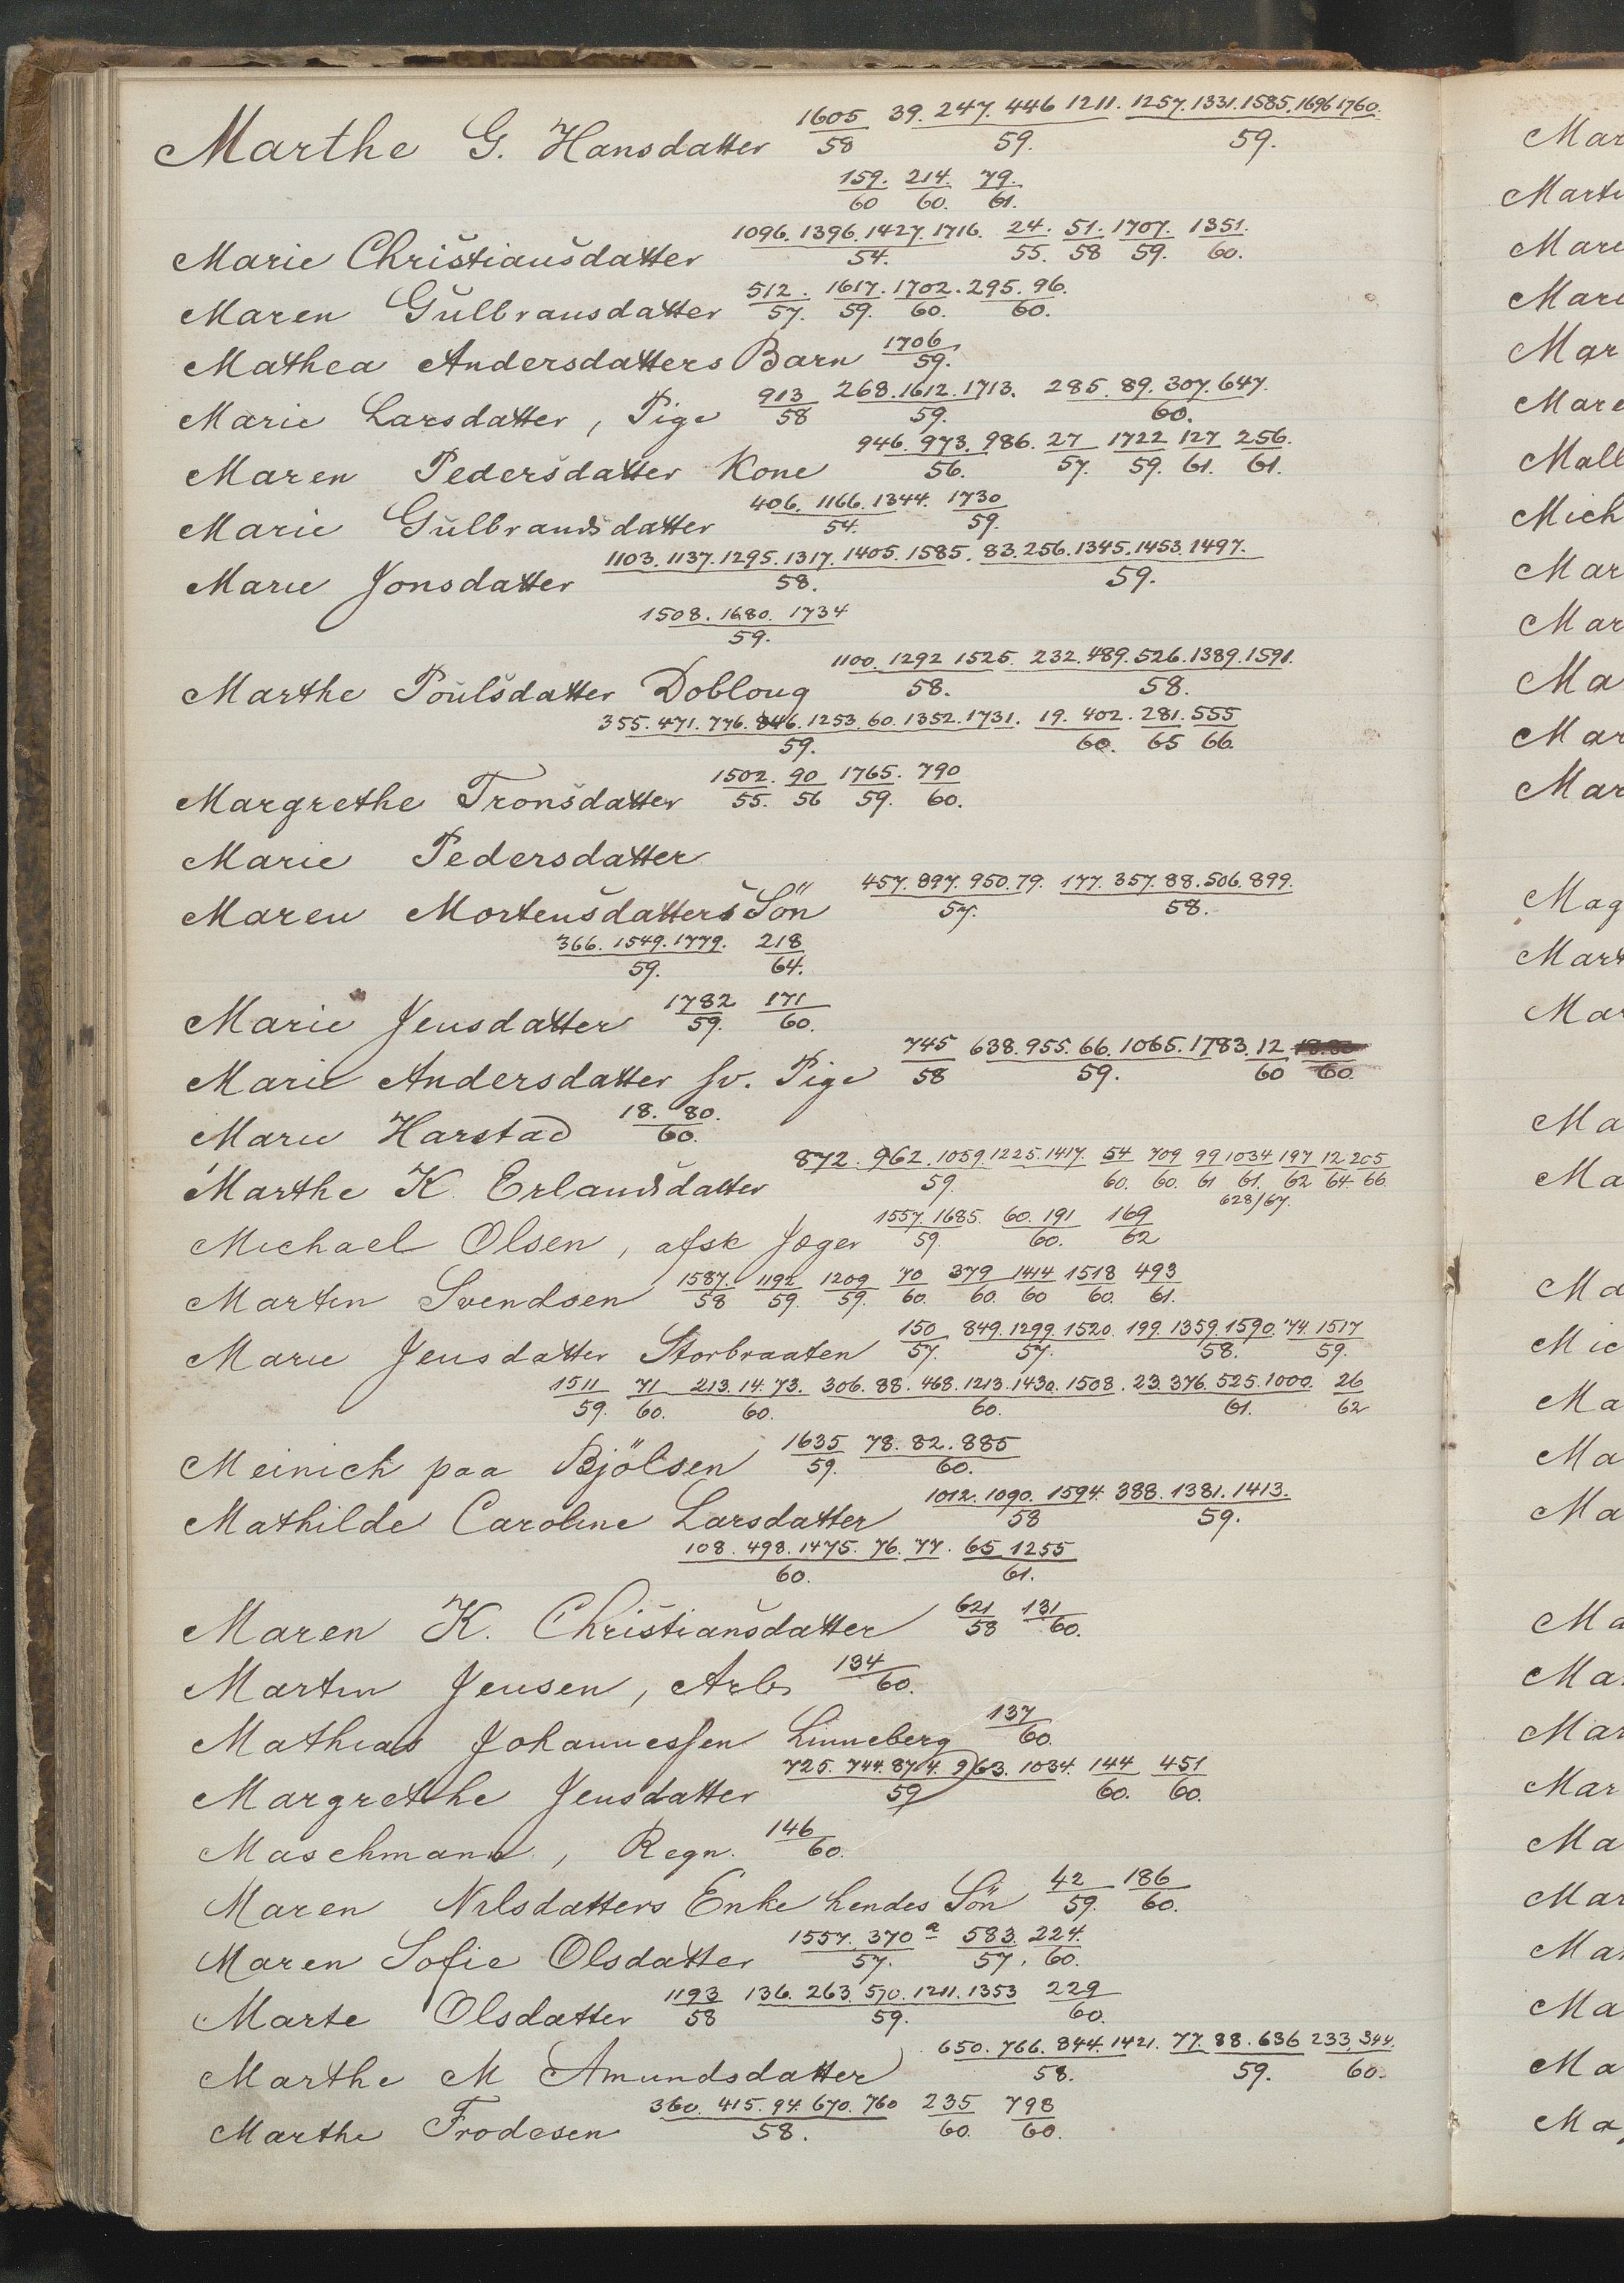 Marthe G. Hansdatter 1605/58 39. 247. 446 1211./59. 1257. 1331. 1585. 1696 1760./59.
159./60 214./60. 79./61.
Marie Christiansdatter 1096. 1396. 1427. 1716./54. 24./55. 51./58 1707./59. 1351./60.
Maren Gulbransdatter 512./57. 1617./59. 1702./60. 295. 96./60.
Mathea Andersdatters Barn 1706/59.
Marie Larsdatter, Pige 913/58 268. 1612. 1713./59. 285. 89. 307. 647./60.
Maren Pedersdatter Kone 946. 973. 986./56. 27/57. 1722/59. 127/61. 256./61.
Marie Gulbrandsdatter 406. 1166. 1344./54. 1730/59.
Marie Jonsdatter 1103. 1137. 1295. 1317. 1405. 1585./58. 83. 256. 1345. 1453. 1497./59.
1508. 1680. 1734/59.
Marthe Poulsdatter Dobloug 1100. 1292 1525./58. 232. 489. 526. 1389. 1591./58.
355. 471. 776. 846. 1253. 60. 1352. 1731./59. 19. 402./60. 281./65 555/66.
Margrethe Tronsdatter 1502./55. 90/56 1765./59. 790/60.
Marie Pedersdatter
Maren Mortensdatters Sön 457. 897. 950. 79./57. 177. 357. 88. 506. 899./58.
366. 1549. 1779./59. 218/64.
Marie Jensdatter 1782/59. 171/60.
Marie Andersdatter fv. Pige 745/58 638. 955. 66. 1065. 1783./59. 12/60 60.
Marie Harstad 18. 80./60.
Marthe K. Erlandsdatter 872. 962. 1059. 1225. 1417./59. 54/60. 709/60. 99/61 1034/61. 197/62 12/64. 205/66
628/67.
Michael Olsen, afsk Jæger 1557. 1685./59. 60. 191/60. 169/62
Martin Svendsen 1587./58 1192/59. 1209/59. 70/60. 379/60. 1414/60 1518/60. 493/61.
Marie Jensdatter Storbraaten 150/57. 849. 1299. 1520./57. 199. 1359. 1590./58. 74. 1517/59.
1511/59. 71/60. 213. 14. 73./60. 306. 88. 468. 1213. 1430. 1508./60. 23. 376. 525. 1000./61. 26/62
Meinich paa Bjölsen 1635/59. 78. 82. 885/60.
Mathilde Caroline Larsdatter 1012. 1090. 1594./58 388. 1381. 1413./59.
108. 498. 1475. 76. 77./60. 65 1255/61.
Maren K. Christiansdatter 621/58 131/60.
Martin Jensen, Arb. 134/60.
Mathias Johannessen Linneberg 137/60.
Margrethe Jensdatter 725. 744. 874. 963. 1034./59 144/60. 451/60.
Maschmann, Regn. 146/60.
Maren Nilsdatters Enke hendes Sön 42/59. 186/60.
Maren Sofie Olsdatter 1557. 370 a/57. 583./57. 224./60.
Marte Olsdatter 1193/58 136. 263. 570. 1211. 1353/59. 229/60.
Marthe M Amundsdatter 650. 766. 844. 1421./58. 77. 88. 636/59. 233. 344./60.
Marthe Frodesen 360. 415. 94. 670. 760/58. 235/60. 798/60.